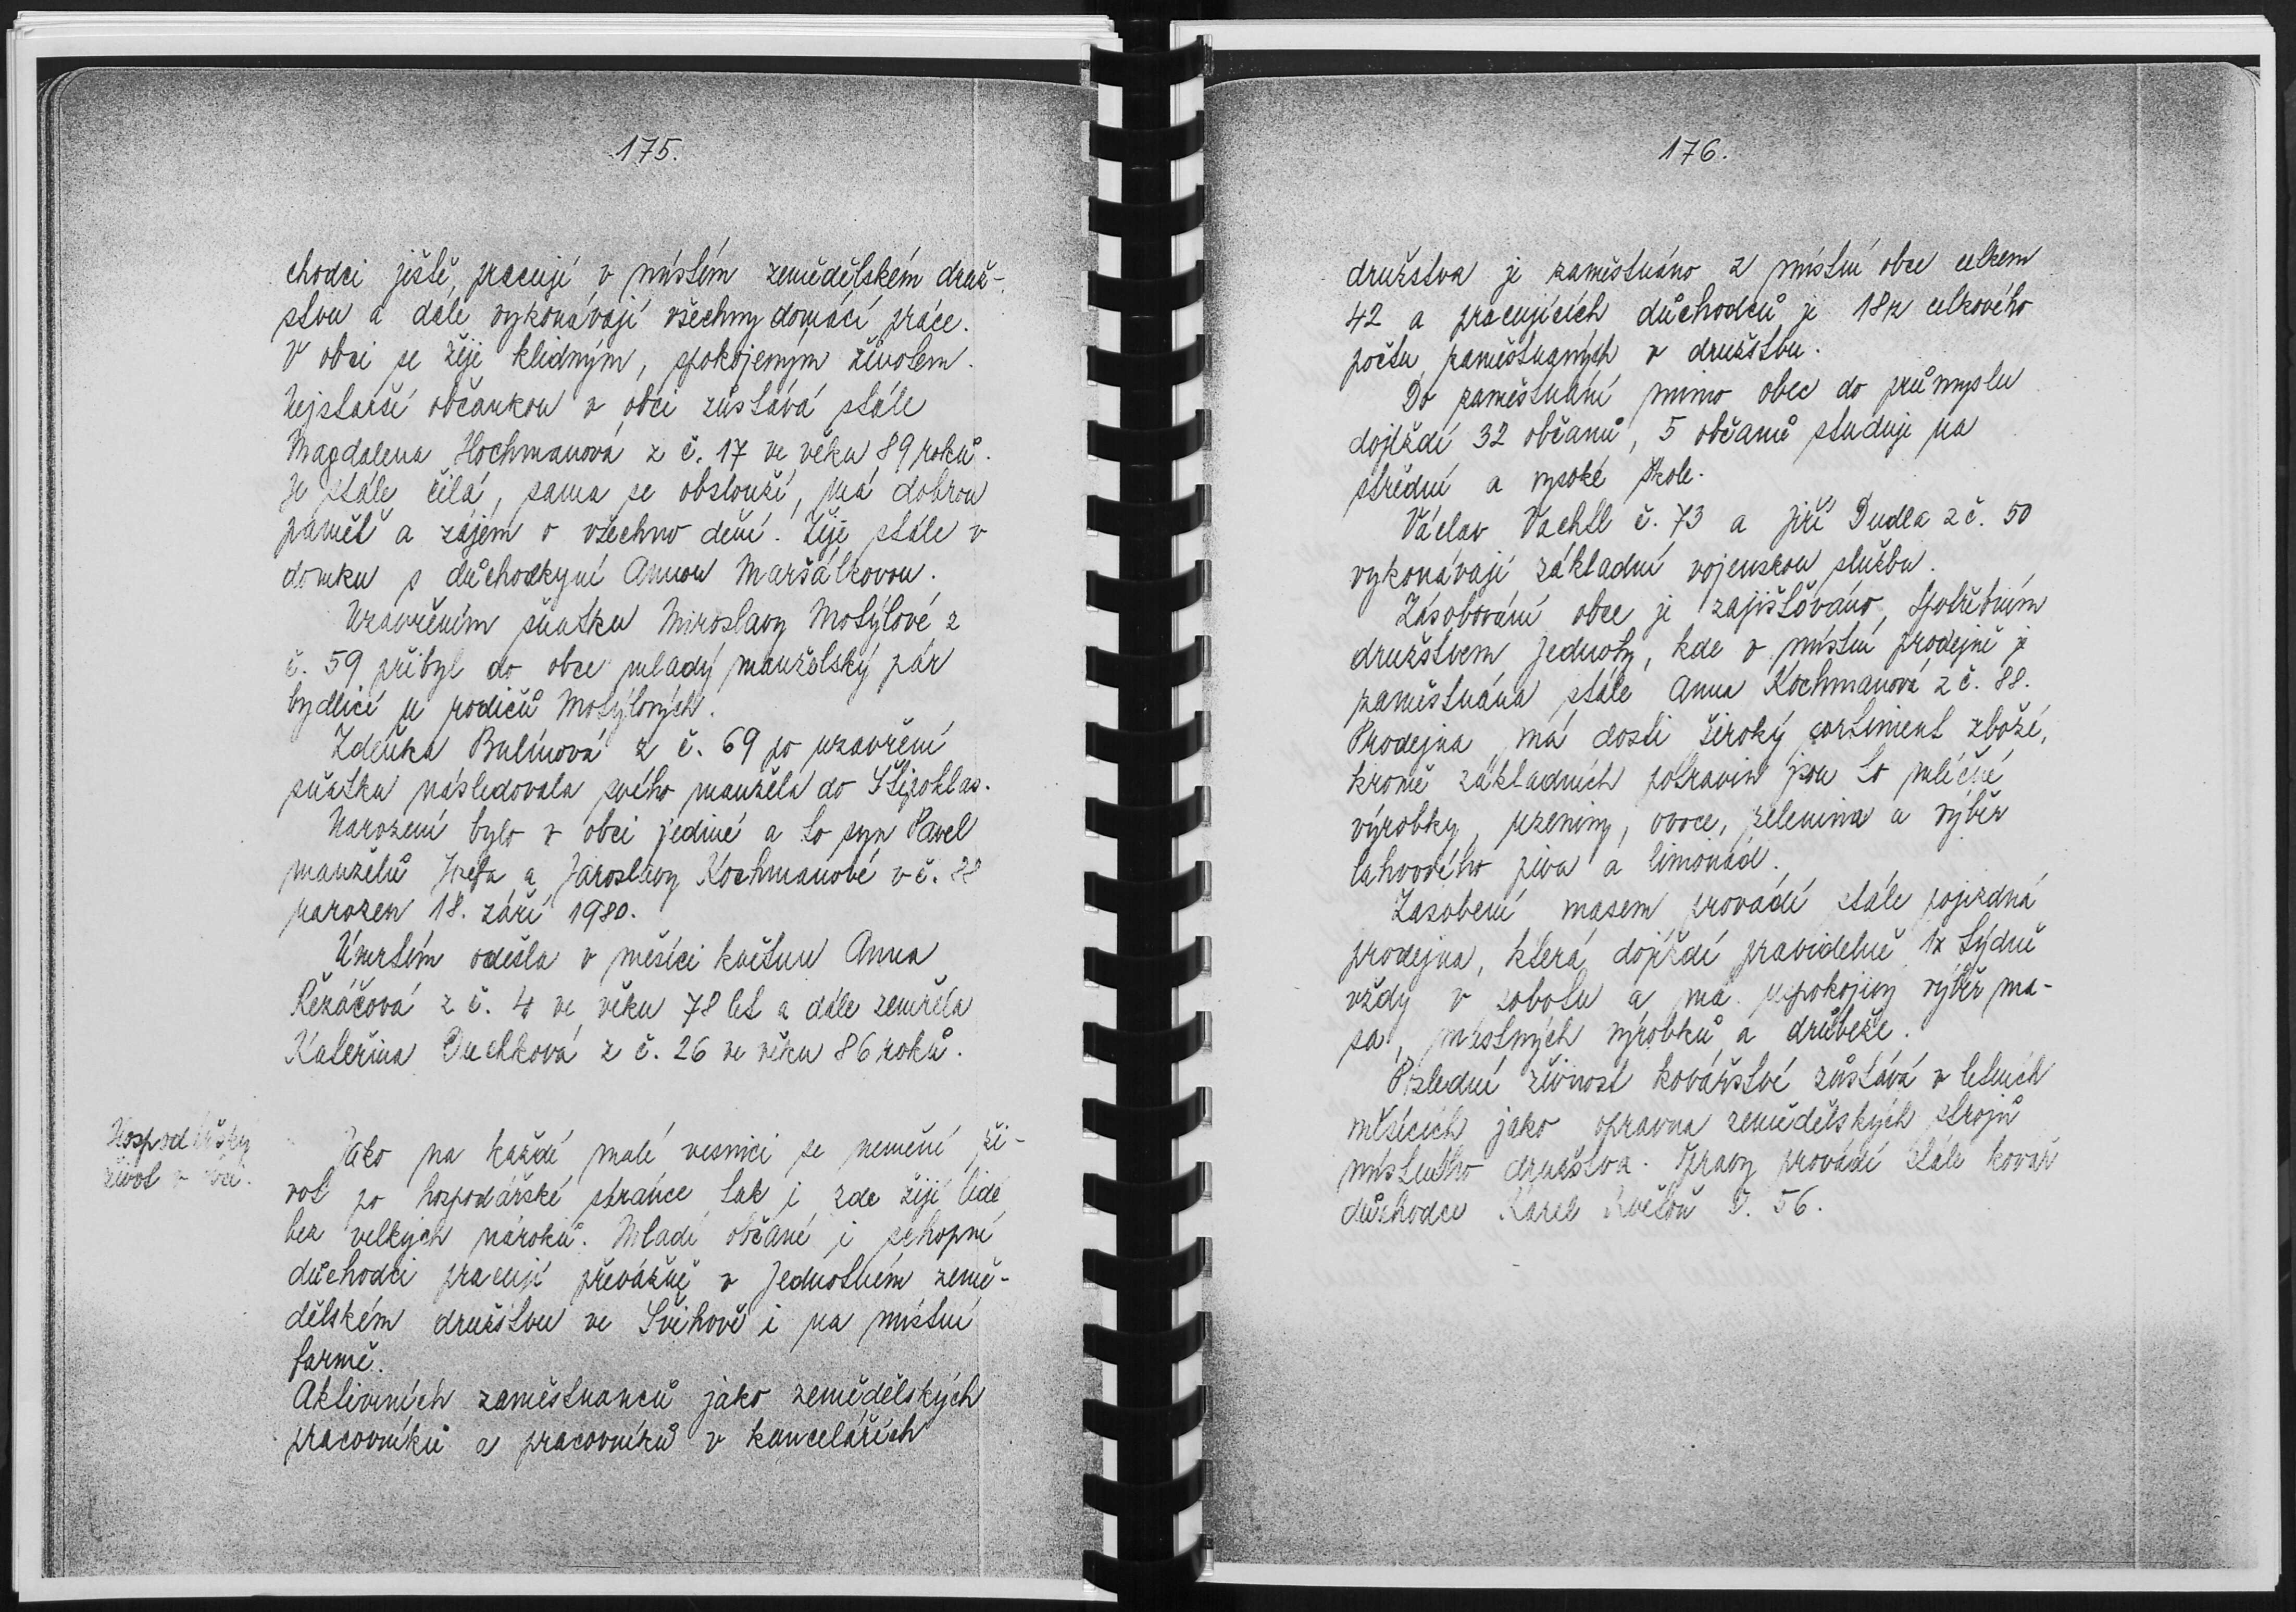 175.
chodci ještě pracují v místím zemědělském druž-
stvu a dále vykonávají všechny domácí práce.
V obci se žije klidným, spokojeným životem.
Nejstarší občankou v obci zůstává stále
Magdalena Hochmanová z č. 17 ve věku 89 roků.
Je stále čilá, sama se obslouží, má dobrou
paměť a zájem o všechno dění. Žije stále v
domku s důchodkyní Annou Maršálkovou.
Uzavřením sňatku Miroslavy Motýlové z
č. 59 přibyl do obce mladý manželský pár
bydlící u rodičů Motýlových.
Zdeňka Bulínová z č. 69 po uzavření
sňatku následovala svého manžela do Štipoklas.
Narození bylo v obci jediné a to syn Pavel
manželů Josefa a Jaroslavy Kochmanové v č. 88
narozen 18. září 1980.
Úmrtím odešla v měsíci květnu Anna
Řezáčová z č. 4 ve věku 78 let a dále zemřela
Kateřina Duchková z č. 26 ve věku 86 roků.
Hospodářský
život v obci.
Jako na každé malé vesnici se nemění ži-
vot po hospodářské stránce tak i zde žijí lidé
bez velkých nároků. Mladí občané i schopní
důchodci pracují převážně v Jednotném země-
dělském družstvu ve Švihově i na místní
farmě.
Aktivních zaměstnanců jako zemědělských
pracovníků a pracovníků v kancelářích
176.
družstva je zaměstnáno z místní obce celkem
42 a pracujících důchodců je 18 z celkového
počtu zaměstnaných v družstvu.
Do zaměstnání mimo obec do průmyslu
dojíždí 32 občanů, 5 občanů studuje na
střední a vysoké škole.
Václav Vachtl č. 73 a Jiří Dudla z č. 50
vykonávají základní vojenskou službu.
Zásobování obce je zajišťováno Spotřebním
družstvem Jednoty, kde v místní prodejně je
zaměstnána stále Anna Kochmanová z č. 88.
Prodejna má dosti široký sortiment zboží,
kromě základních potravin jsou to mléčné
výrobky, uzeniny, ovoce, zelenina a výběr
lahvového piva a limonád.
Zásobení masem provádí stále pojízdná
prodejna, která dojíždí pravidelně 1x týdně
vždy v sobotu a má uspokojivý výběr ma-
sa, masných výrobků a drůbeže.
Poslední živnost kovářství zůstává v letních
měsících jako opravna zemědělských strojů
místního družstva. Opravy provádí stále kovář
důchodce Karel Květoň č. 56.